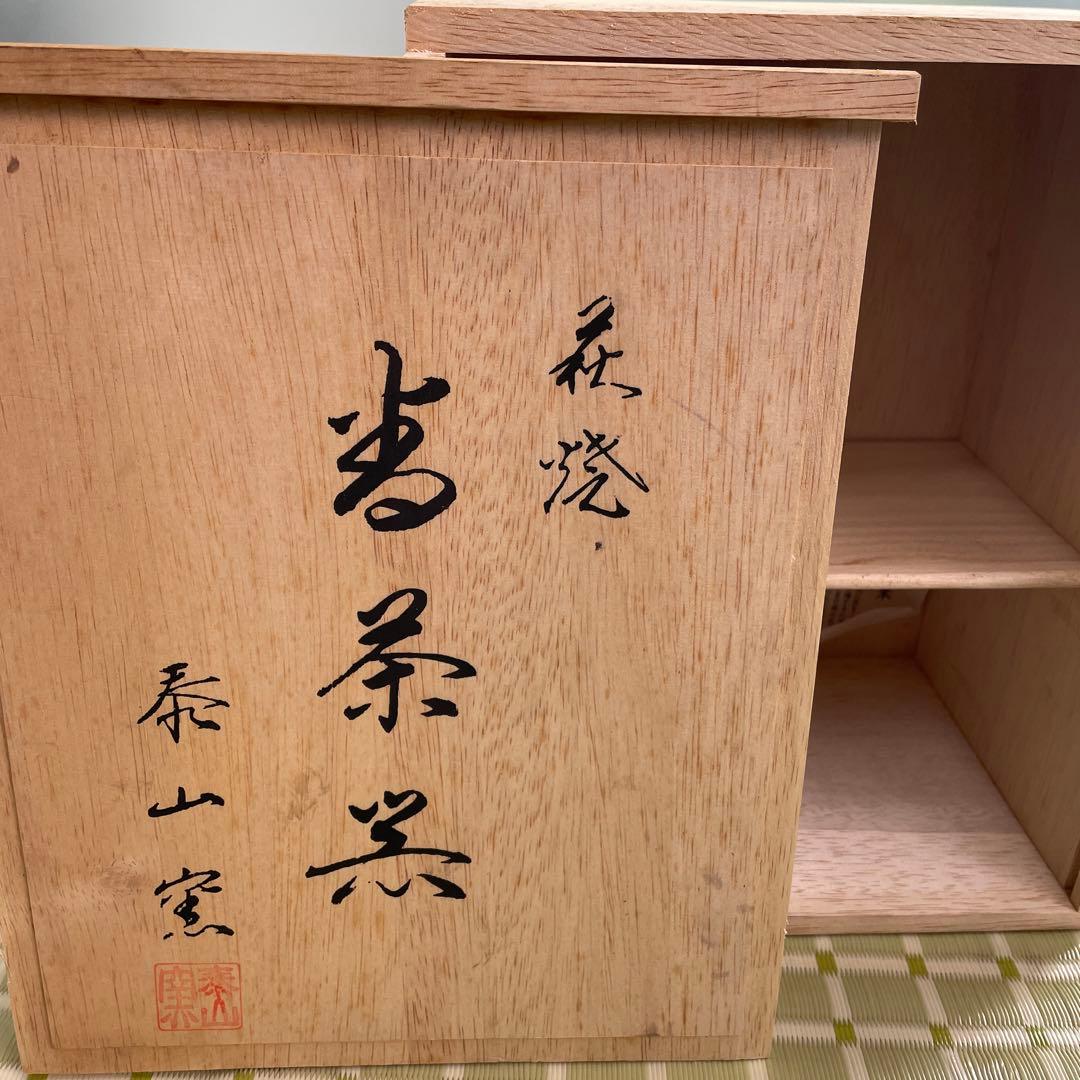 萩焼
番茶器
泰山窯
泰山窯